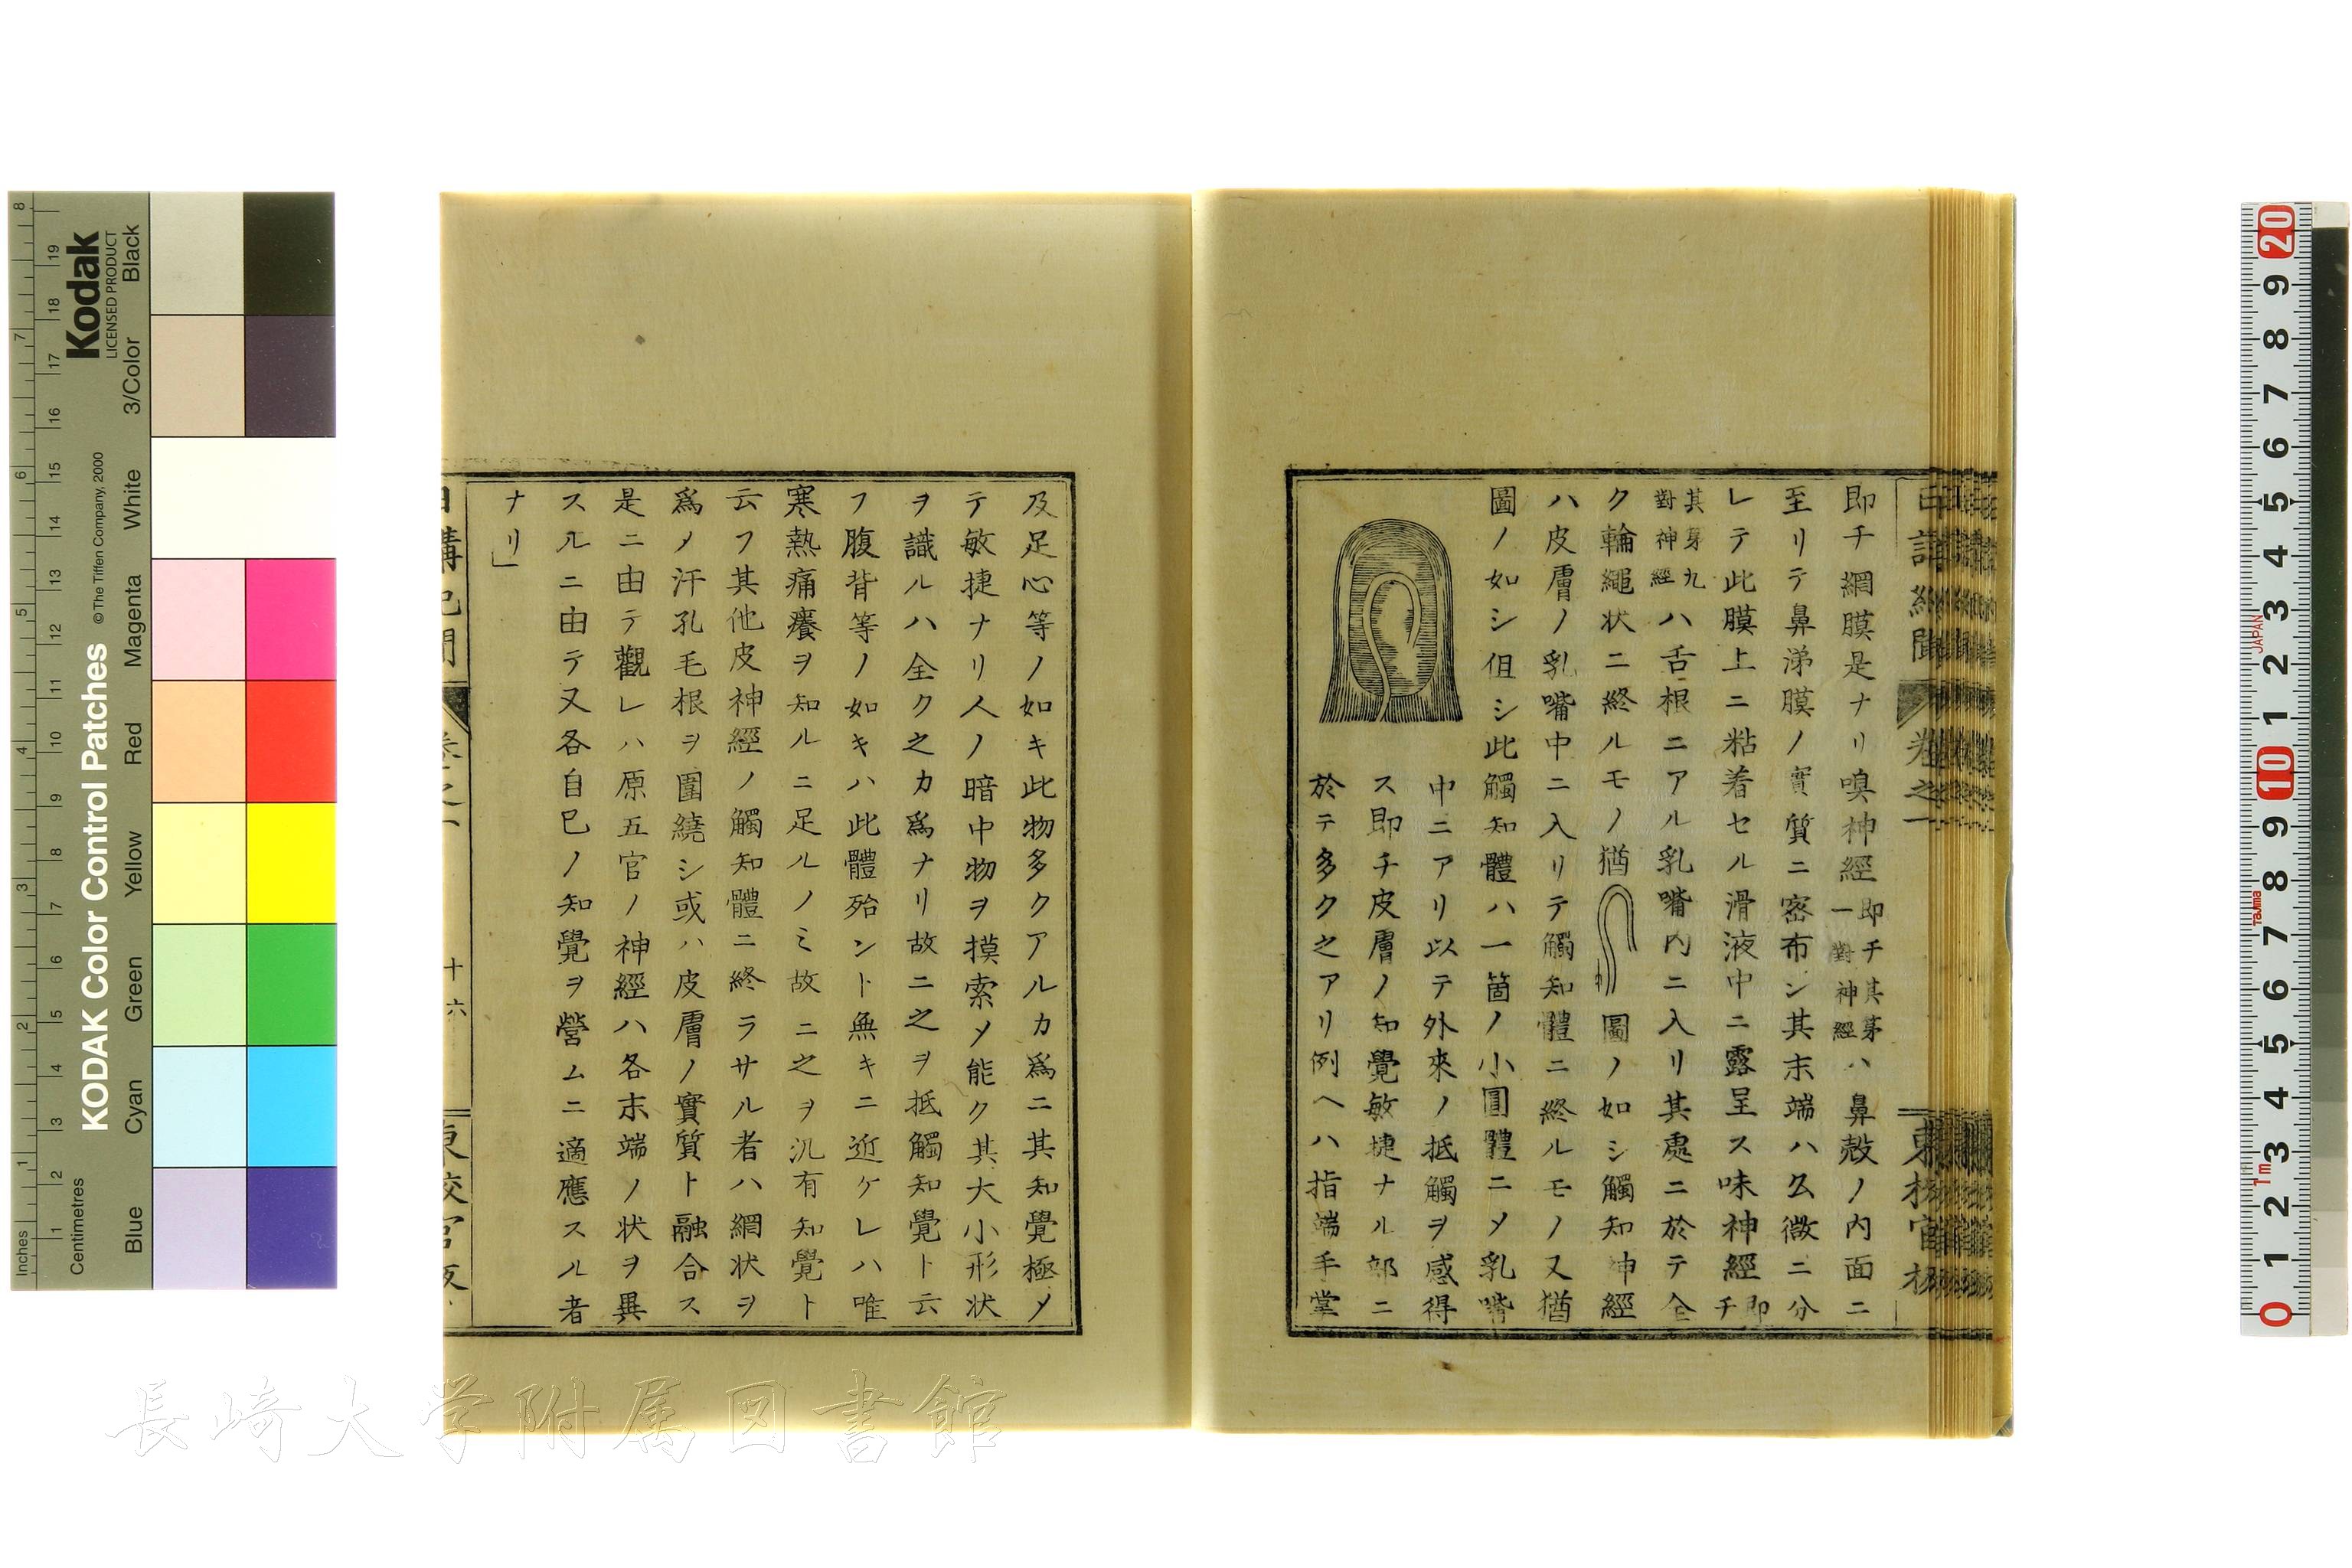 即チ網膜是ナリ嗅神經即チ其第一對神經ハ鼻殻ノ内面ニ
至リテ鼻涕膜ノ實質ニ密布シ其末端ハ幺微ニ分
レテ此膜上ニ粘着セル滑液中ニ露呈ス味神經即チ
其第九對神經ハ舌根ニアル乳嘴内ニ入リ其處ニ於テ全
ク輪繩状ニ終ルモノ猶圖ノ如シ觸知神經
ハ皮膚ノ乳嘴中ニ入リテ觸知體ニ終ルモノ又猶
圖ノ如シ但シ此觸知體ハ一箇ノ小圓體ニメ乳嘴
中ニアリ以テ外來ノ抵觸ヲ感得
ス即チ皮膚ノ知覺敏捷ナル部ニ
於テ多ク之アリ例ヘハ指端手掌
及足心等ノ如キ此物多クアルカ爲ニ其知覺極メ
テ敏捷ナリ人ノ暗中物ヲ摸索メ能ク其大小形状
ヲ識ルハ全ク之カ爲ナリ故ニ之ヲ抵觸知覺ト云
フ腹背等ノ如キハ此體殆ント無キニ近ケレハ唯
寒熱痛癢ヲ知ルニ足ルノミ故ニ之ヲ汎有知覺ト
云フ其他皮神經ノ觸知體ニ終ラサル者ハ網状ヲ
爲メ汗孔毛根ヲ圍繞シ或ハ皮膚ノ實質ト融合ス
是ニ由テ觀レハ原五官ノ神經ハ各末端ノ状ヲ異
スルニ由テ又各自己ノ知覺ヲ營ムニ適應スル者
ナリ」
卷之一
十六
長崎大学附属図書館
Kodak
LICENSED PRODUCT
KODAK Color Control Patches
© The Tiffen Company, 2000
Inches
Centimetres
Blue
Cyan
Green
Yellow
Red
Magenta
White
3/Color
Black
JAPAN
Tajima
1m